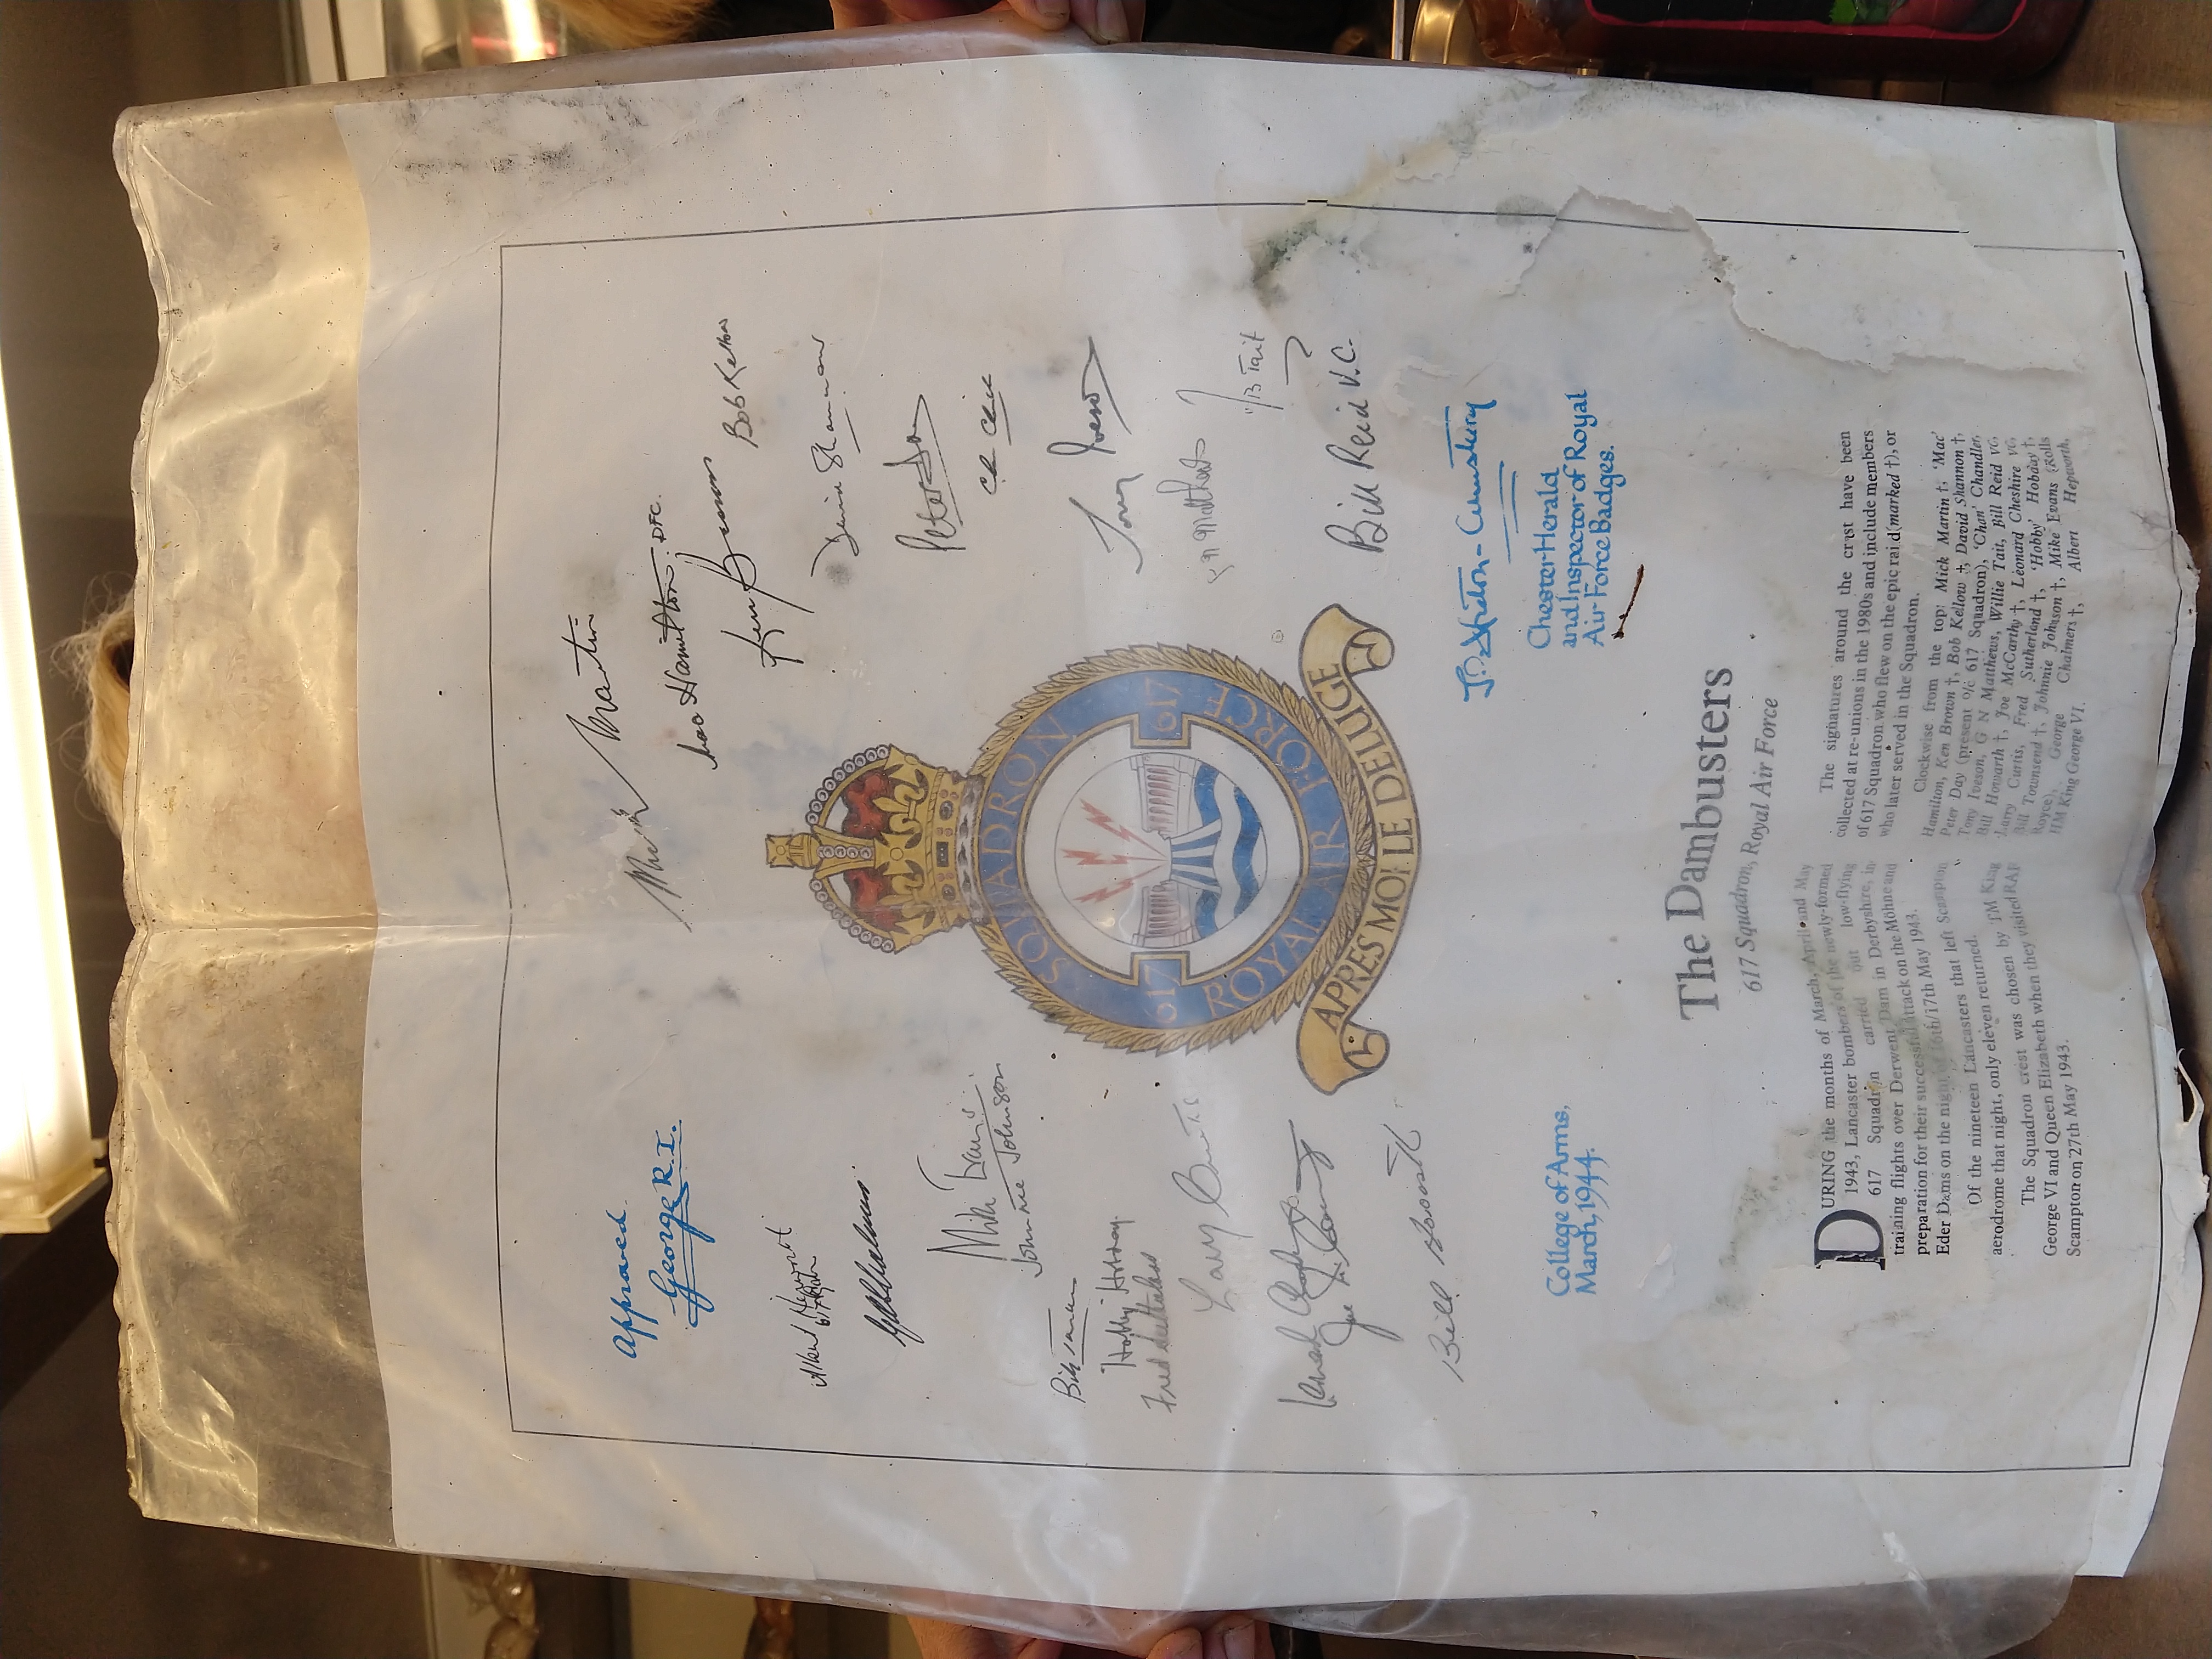 Approved
George R.I.
Mick Martin
Mac Hamilton. DFC.
Ken Brown
Bob Kellow
Albert Hepworth
Peter Day
Mike Evans
Johnnie Johnson
Bill
Tony Iveson
"Hobby" Hobday.
Fred Sutherland
Larry Curtis
G N Matthews
Tait
Joe
Bill Reid V.C.
Bill Howarth
SQUADRON
617
617
ROYAL AIR FORCE
APRES MOI LE DELUGE
College of Arms,
March, 1944.
Chester Herald
and Inspector of Royal
Air Force Badges.
The Dambusters
617 Squadron, Royal Air Force
DURING the months of March, April and May
1943, Lancaster bombers of the newly-formed
617 Squadron carried out low-flying
training flights over Derwent Dam in Derbyshire, in
preparation for their successful attack on the Möhne and
Eder Dams on the night of 16th/17th May 1943.
Of the nineteen Lancasters that left Scampton
aerodrome that night, only eleven returned.
The Squadron crest was chosen by HM King
George VI and Queen Elizabeth when they visited RAF
Scampton on 27th May 1943.
The signatures around the crest have been
collected at re-unions in the 1980s and include members
of 617 Squadron who flew on the epic raid (marked †), or
who later served in the Squadron.
Clockwise from the top: Mick Martin †, 'Mac'
Hamilton, Ken Brown †, Bob Kellow †, David Shannon †,
Peter Day (present o/c 617 Squadron), 'Chan' Chandler,
Tony Iveson, G N Matthews, Willie Tait, Bill Reid VC,
Bill Howarth †, Joe McCarthy †, Leonard Cheshire VC,
Larry Curtis, Fred Sutherland †, 'Hobby' Hobday †,
Bill Townsend †, Johnnie Johnson †, Mike Evans (Rolls
Royce), George Chalmers †, Albert Hepworth,
HM King George VI.